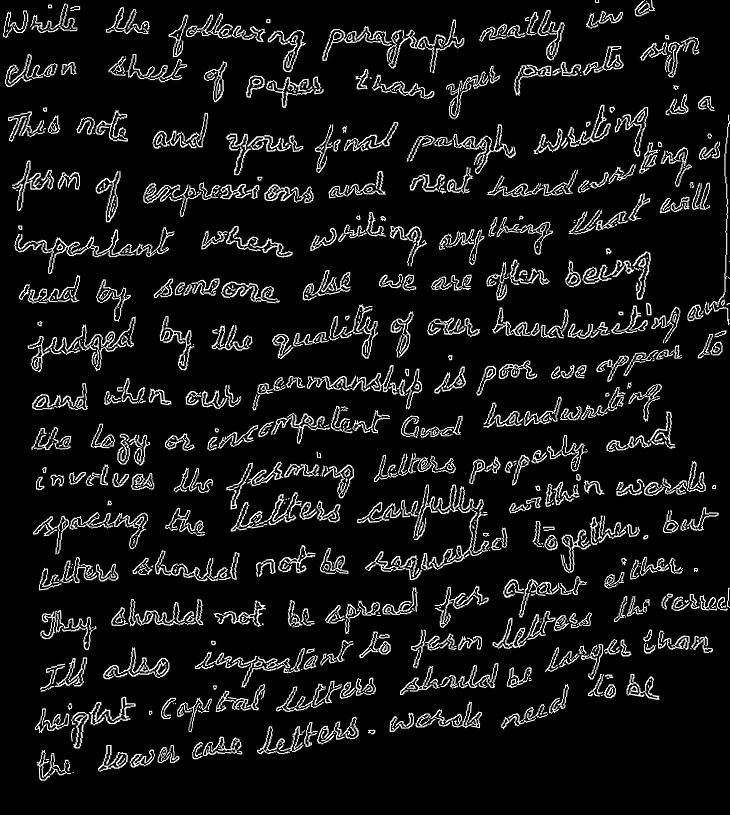 Write the following paragraph neatly in a
clean sheet of paper than your parents sign
This note and your final paragh writing is a
form of expressions and neat handwriting is
important when writing anything that will
read by someone else we are often being
judged by the quality of our handwriting and
and when our penmanship is poor we appear to
the lazy or incompetent Good handwriting
involves the forming letters properly and
spacing the letters carefully within words.
letters should not be together, but
They should not be spread far apart either.
It's also important to form letters the correct
height. Capital letters should be larger than
the lower case letters. words need to be